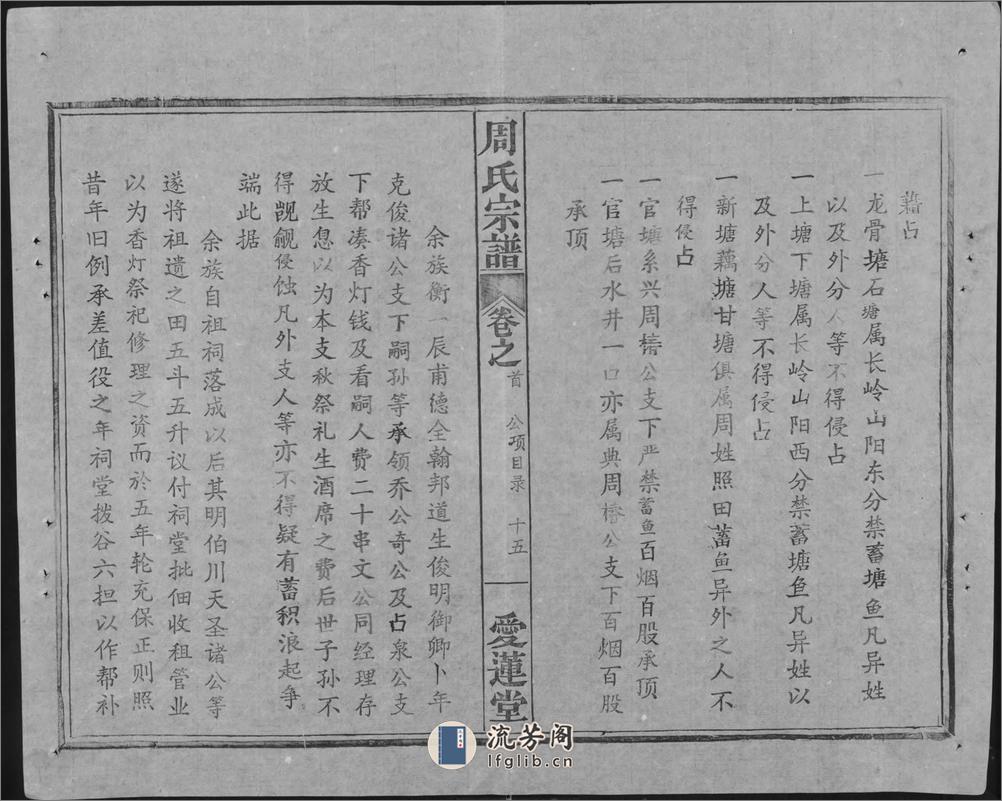 藉占
一龙骨塘石塘属长岭山阳东分禁蓄塘鱼凡异姓
以及外分人等不得侵占
一上塘下塘属长岭山阳西分禁蓄塘鱼凡异姓以
及外分人等不得侵占
一新塘藕塘甘塘俱属周姓照田蓄鱼异外之人不
得侵占
一官塘系兴周椿公支下严禁蓄鱼百烟百股承顶
一官塘后水井一口亦属典周椿公支下百烟百股
承顶
周氏宗譜
卷之
首 公项目录 十五
愛蓮堂
余族衡一辰甫德全翰邦道生俊明御卿卜年
克俊诸公支下嗣孙等承领乔公奇公及占泉公支
下帮凑香灯钱及看嗣人费二十串文公同经理存
放生息以为本支秋祭礼生酒席之费后世子孙不
得觊觎侵蚀凡外支人等亦不得疑有蓄积浪起争
端此据
余族自祖祠落成以后其明伯川天圣诸公等
遂将祖遗之田五斗五升议付祠堂批佃收租管业
以为香灯祭祀修理之资而於五年轮充保正则照
昔年旧例承差值役之年祠堂拨谷六担以作帮补
流芳阁
lfglib.cn